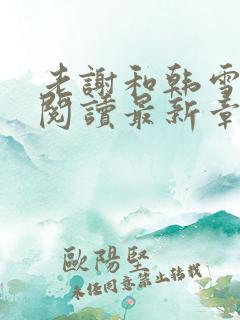 老謝和韩雪
閱讀最新章
歐陽堅
未任同意禁止轉載